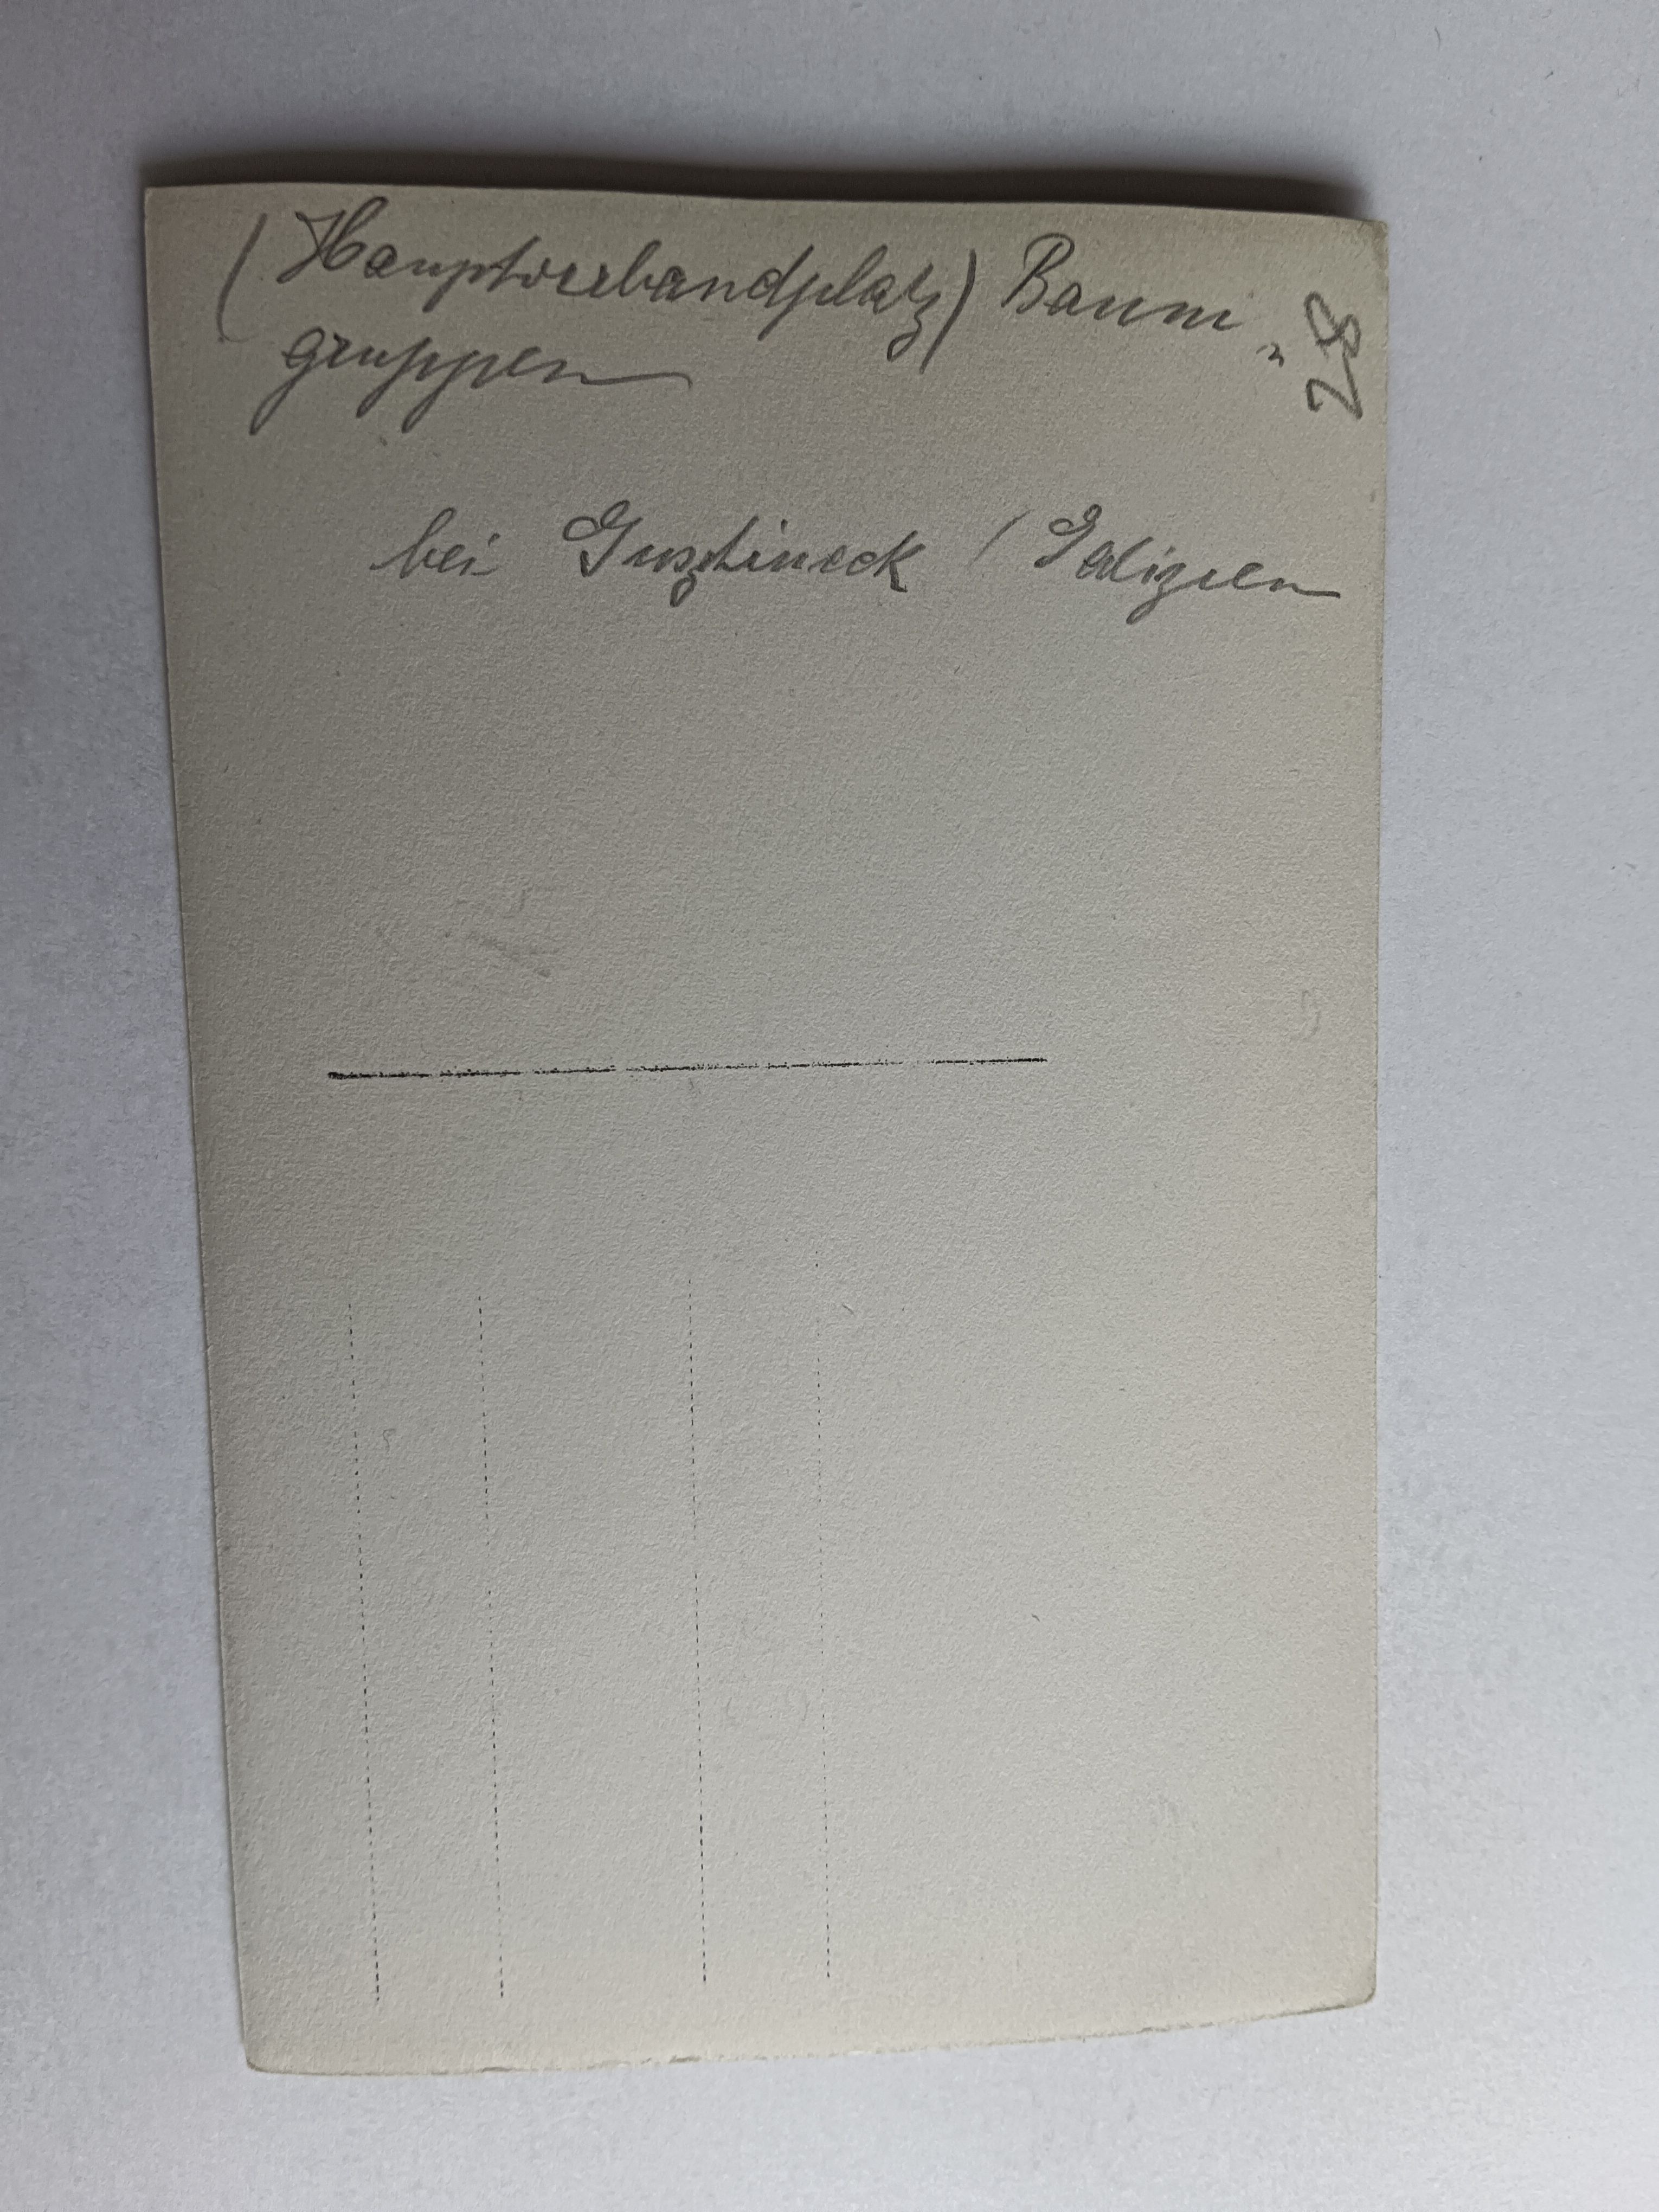 (Hauptverbandplatz) Baum„
gruppen
bei Gusztineck / Galizien
28